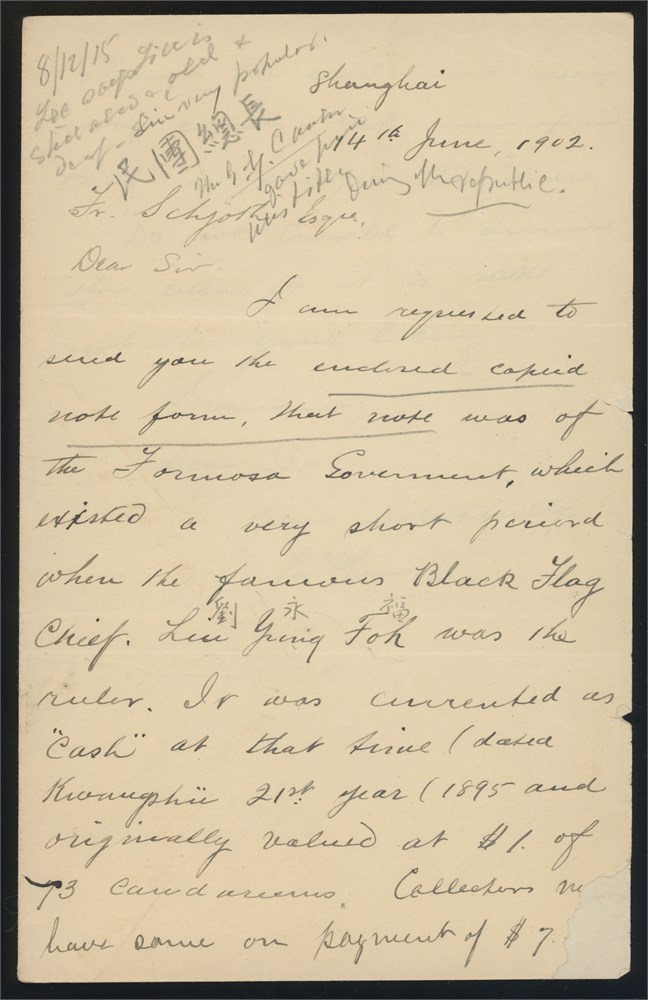 8/12/15
Lee says Liu is
still alive & old &
deaf - Liu very popular.
民團總長
The G. of Canton
gave him
this title
During the republic.
Shanghai
14th June, 1902.
Fr. Schjöth Esqre,
Dear Sir
I am requested to
send you the enclosed copied
note form, that note was of
the Formosa Goverment, which
existed a very short period
when the famous Black Flag
劉 永 福
Chief. Liu Yung Foh was the
ruler. It was currented as
"Cash" at that time (dated
Kwangshü 21st year (1895 and
originally valued at $1. of
73 candareens. Collectors
have some on payment of $7.